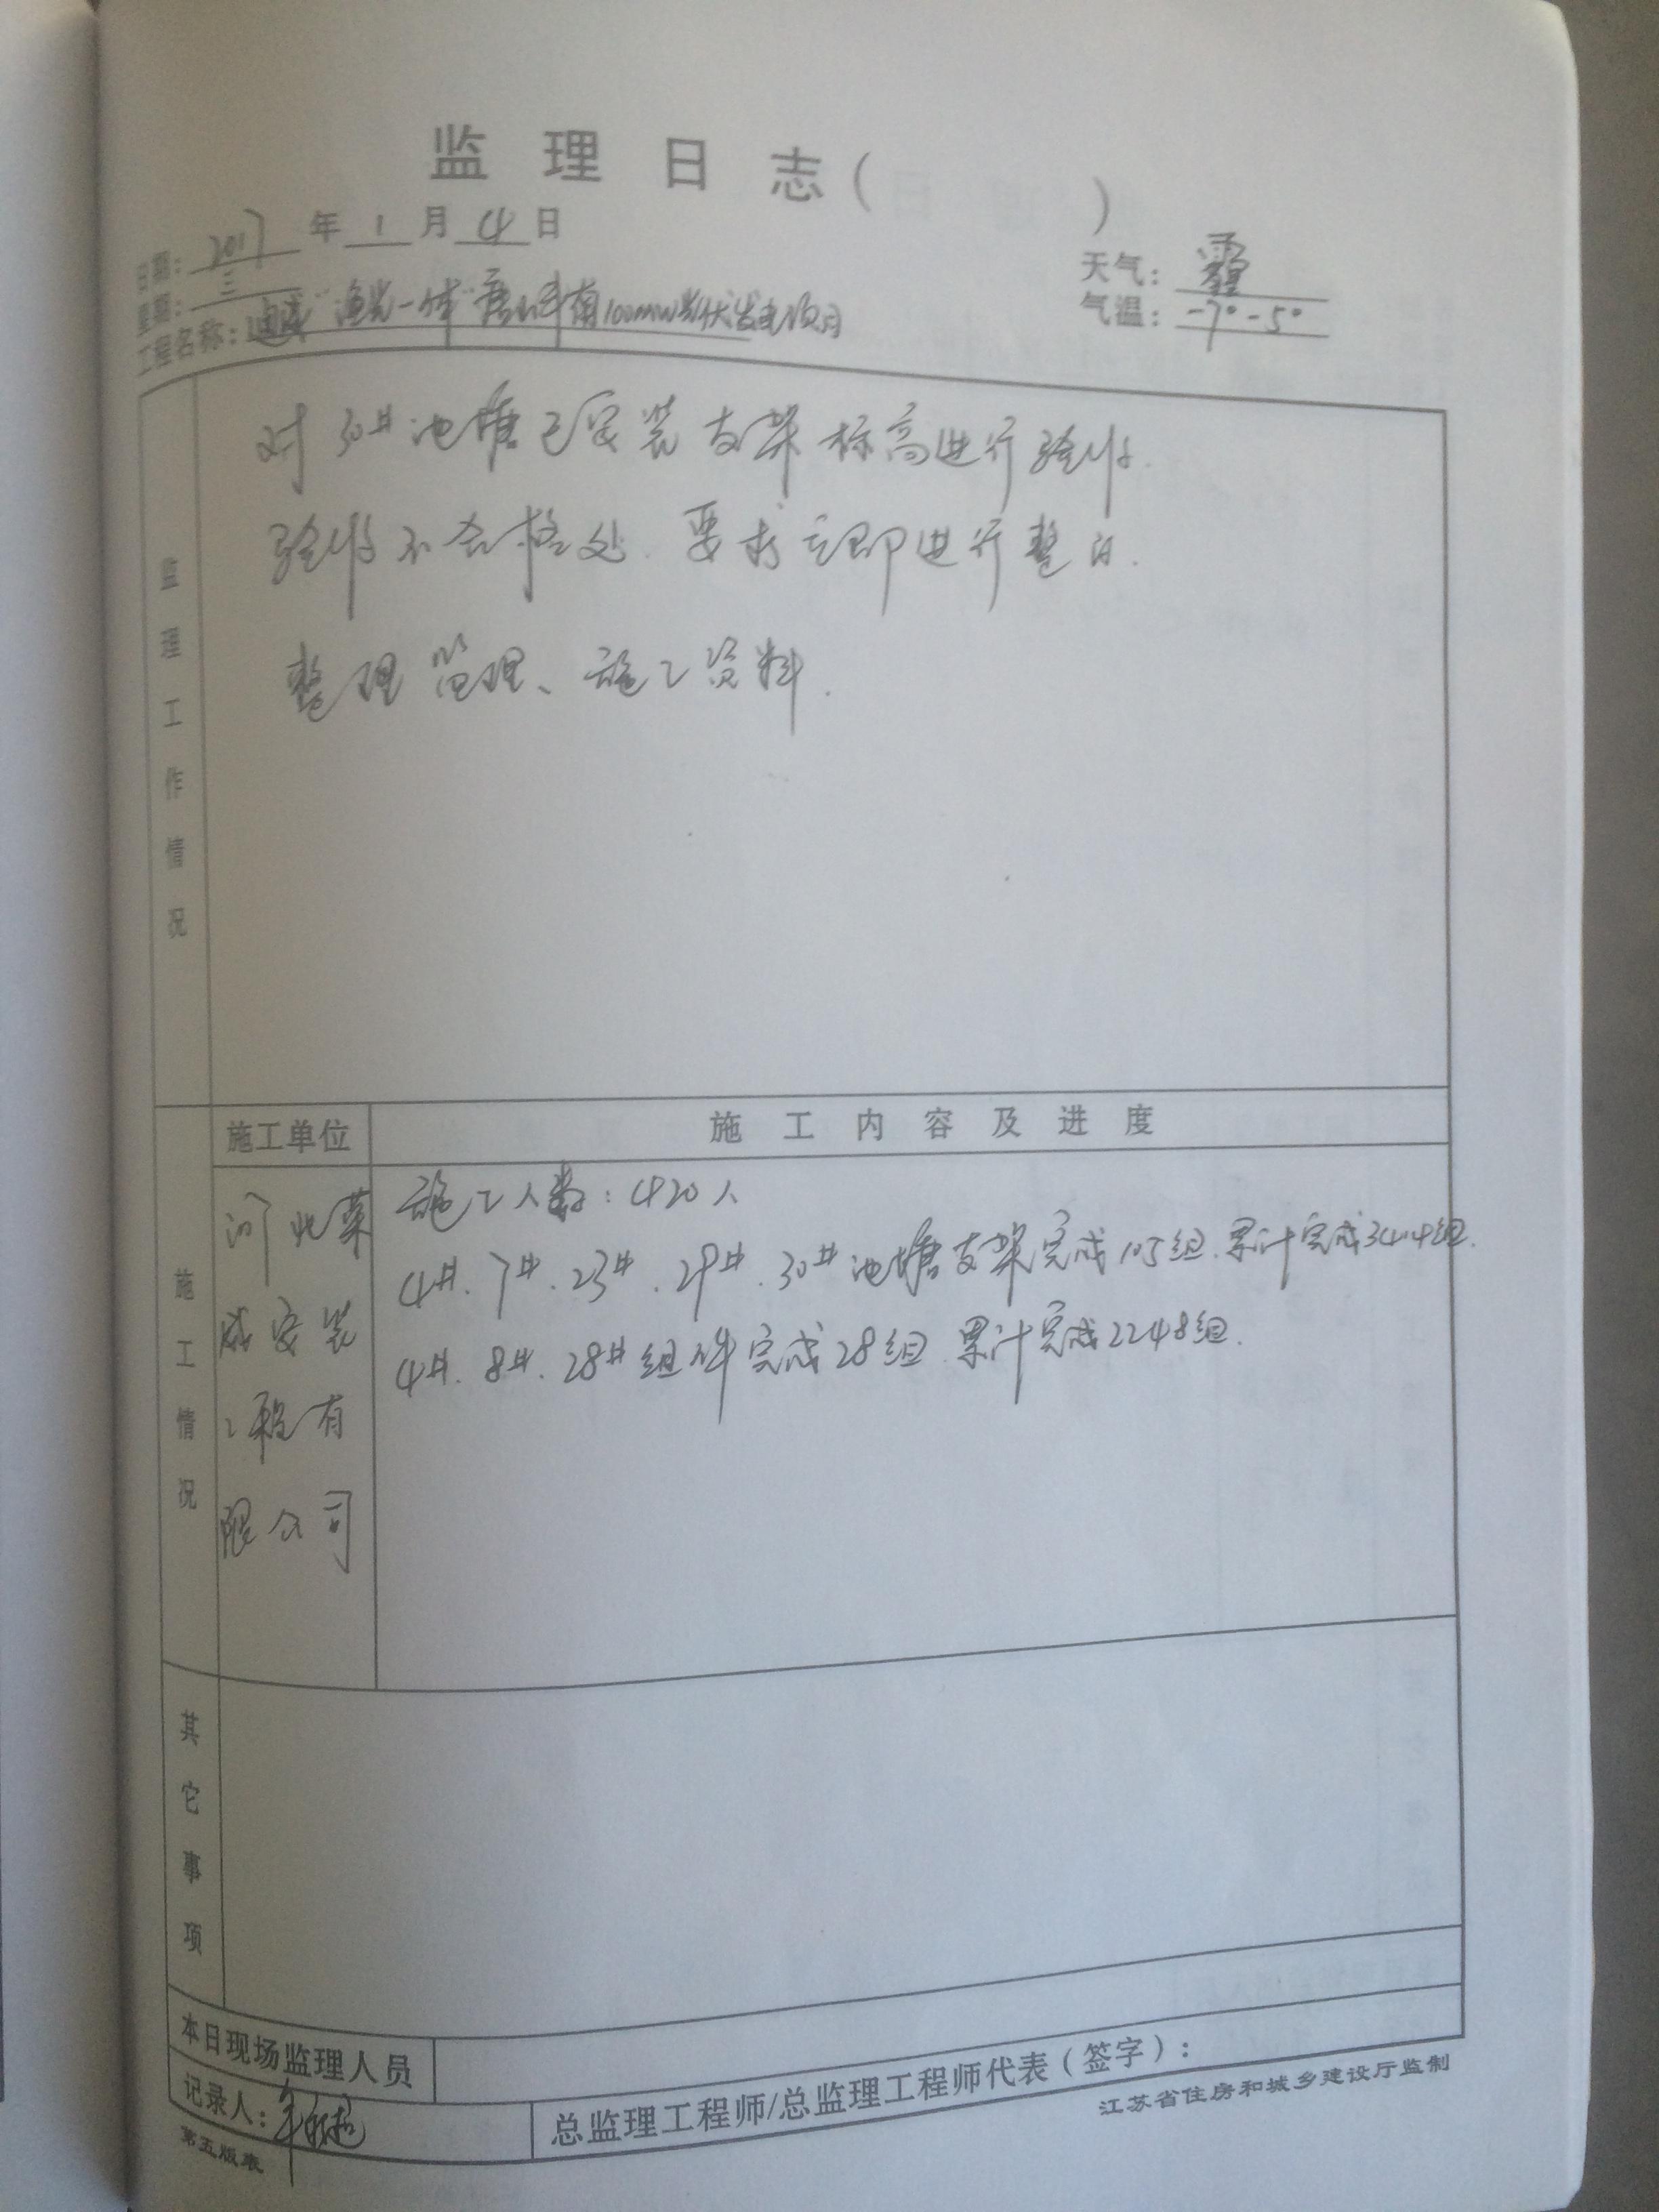 监理日志( )
日期: 2017 年 1 月 4 日
星期: 三
天气: 霾
气温: -7°-5°
工程名称: 通威"渔光一体"唐山丰南100MW光伏发电项目
监理工作情况
对30#池塘已安装支架标高进行验收.
验收不合格处.要求立即进行整改.
整理监理、施工资料.
施工情况
施工单位
施工内容及进度
河北
安装
工程有
限公司
施工人数:420人
4#.7#.23#.29#.30#池塘支架完成105组.累计完成3414组.
4#.8#.28#组件完成28组.累计完成2248组.
其它事项
本日现场监理人员
记录人:
总监理工程师/总监理工程师代表(签字):
第五版表
江苏省住房和城乡建设厅监制